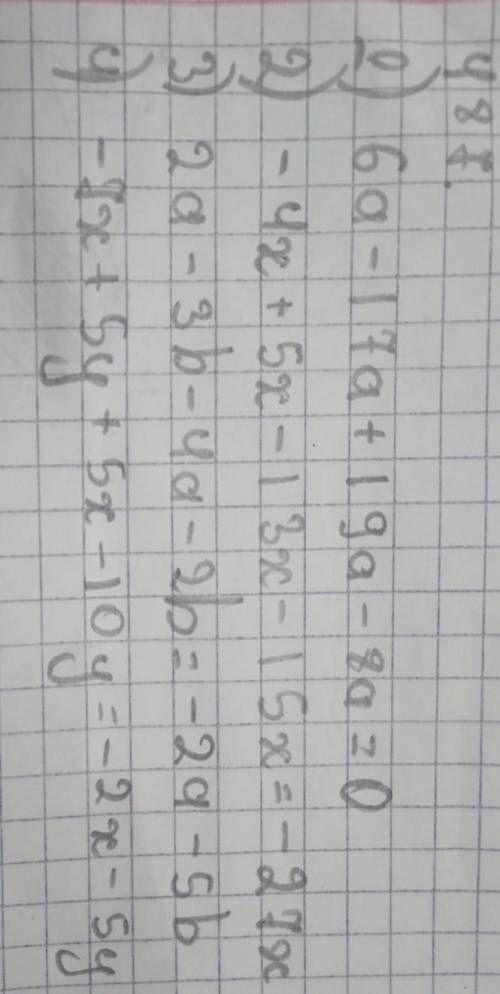 487.
1) 6a - 17a + 19a - 8a = 0
2) - 4x + 5x - 13x - 15x = - 27x
3) 2a - 3b - 4a - 2b = - 2a - 5b
4) - 7x + 5y + 5x - 10y = - 2x - 5y